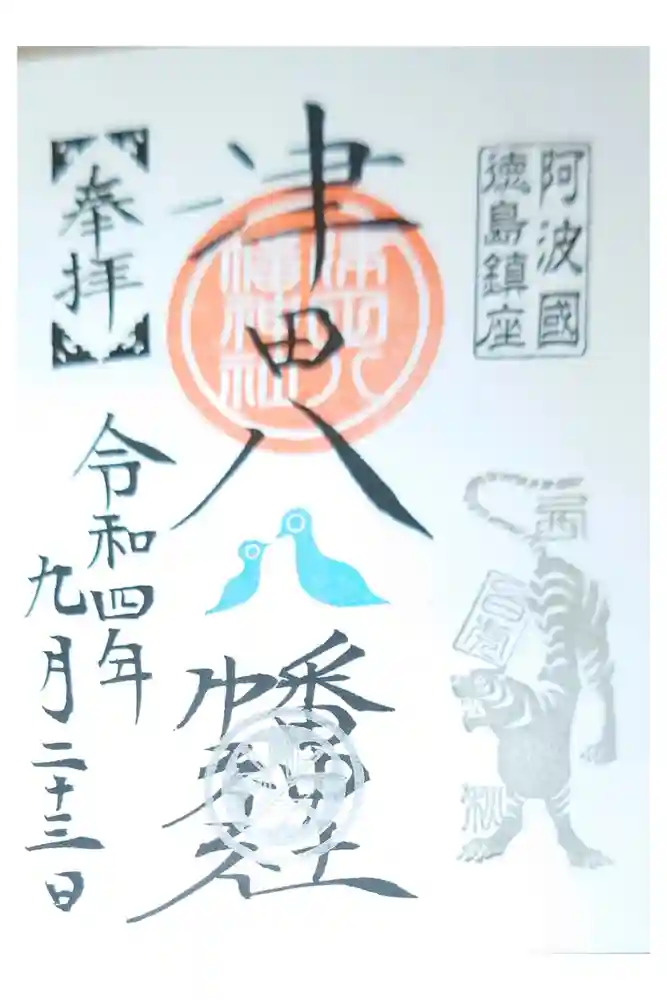 阿波國
徳島鎮座
西
秋
津田八
幡神社
奉拝
令和四年
九月二十三日